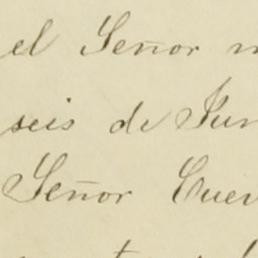 el Señor
seis de Jun
Señor Cuer